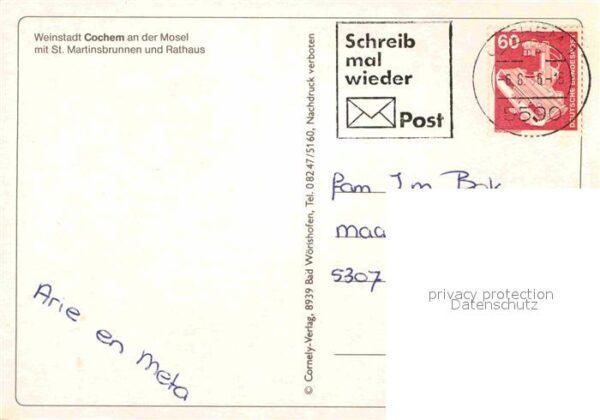 Weinstadt Cochem an der Mosel
mit St. Martinsbrunnen und Rathaus
Schreib
mal
wieder
Post
60
DEUTSCHE BUNDESPOST
5590
© Cornely-Verlag, 8939 Bad Wörishofen, Tel. 0 82 47/5160, Nachdruck verboten
fam Im Bok
maa
5307
Arie en meta
privacy protection
Datenschutz